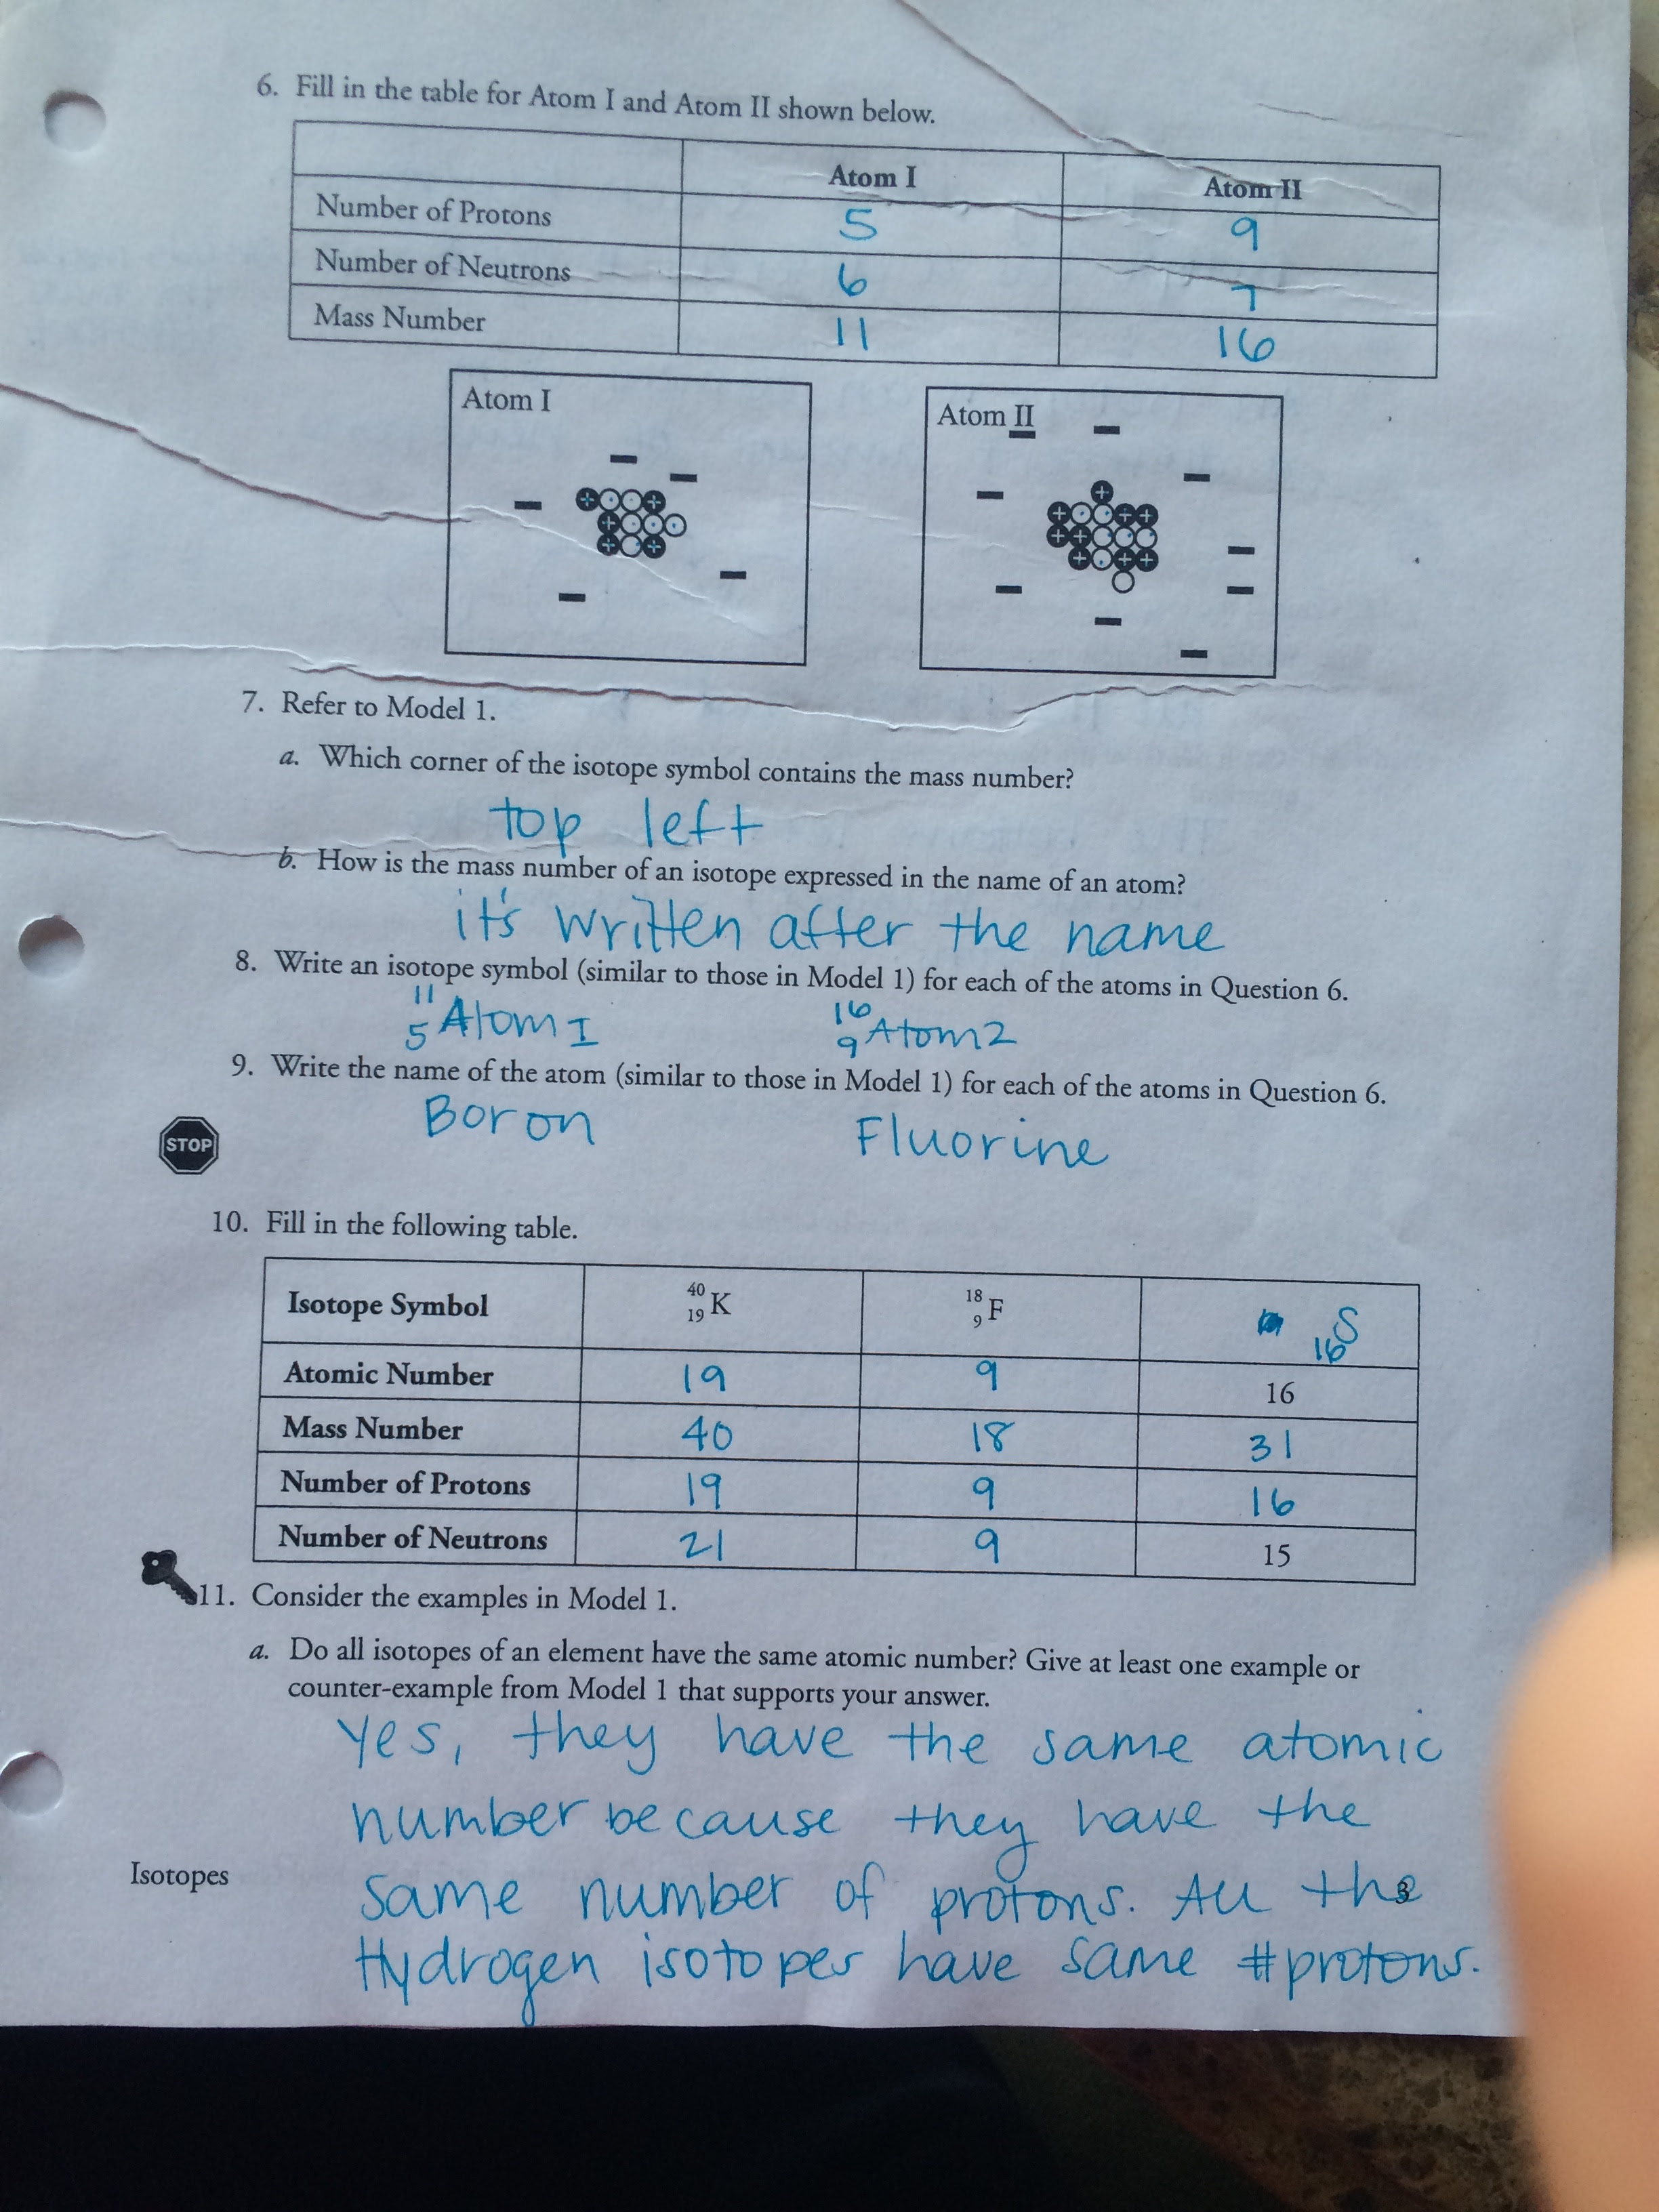 6. Fill in the table for Atom I and Atom II shown below.
Atom I Atom II
Number of Protons 5 9
Number of Neutrons 6 7
Mass Number 11 16
Atom I Atom II
7. Refer to Model 1.
a. Which corner of the isotope symbol contains the mass number?
top left
b. How is the mass number of an isotope expressed in the name of an atom?
it's written after the name
8. Write an isotope symbol (similar to those in Model 1) for each of the atoms in Question 6.
11 16
5 Atom I 9 Atom 2
9. Write the name of the atom (similar to those in Model 1) for each of the atoms in Question 6.
Boron Fluorine
STOP
10. Fill in the following table.
Isotope Symbol 40 19 K 18 9 F 16 S
Atomic Number 19 9 16
Mass Number 40 18 31
Number of Protons 19 9 16
Number of Neutrons 21 9 15
11. Consider the examples in Model 1.
a. Do all isotopes of an element have the same atomic number? Give at least one example or
counter-example from Model 1 that supports your answer.
Yes, they have the same atomic
number because they have the
Isotopes same number of protons. All the 3
Hydrogen isotopes have same #protons.